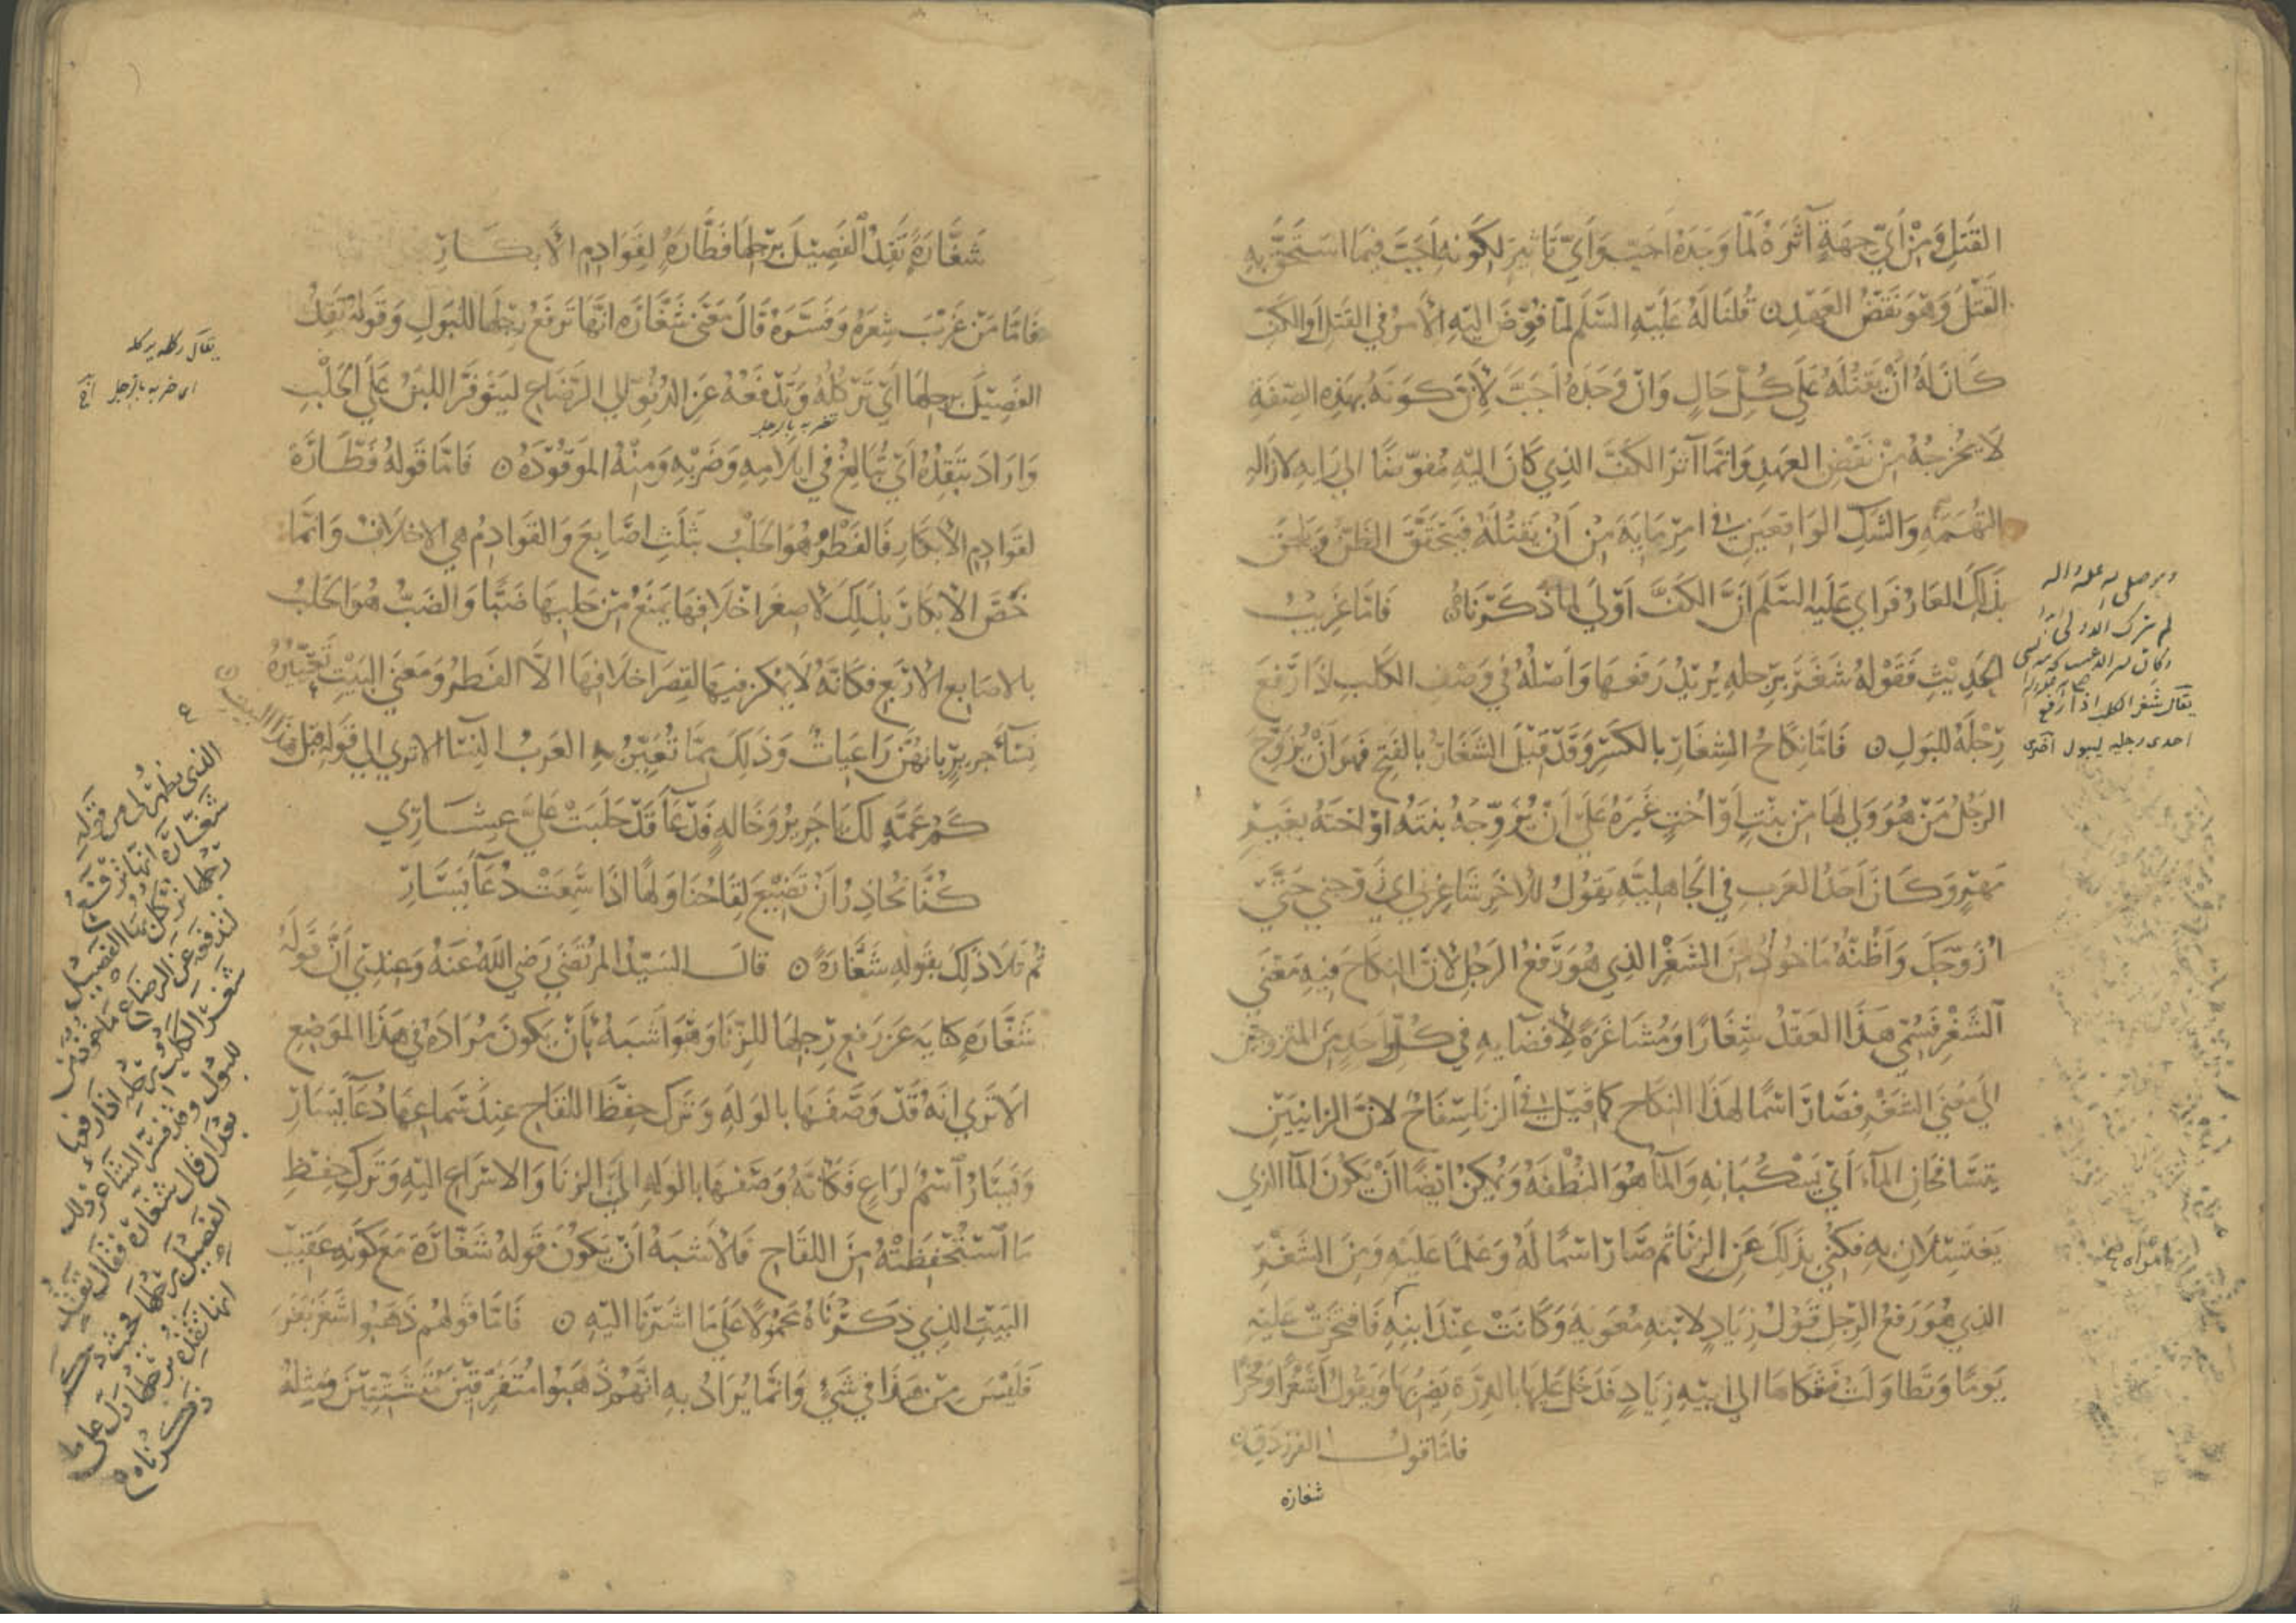 القتل ومن أي جهة آثره لما وجده أجب وأي تأثير لكونه أجب فيما استحق به
القتل وهو نقض العهد قلنا له عليه السلم لما فوض اليه الأمر في القتل أو الكف
كان له أن يقتله على كل حال وان وجده أجب لأن كونه بهذه الصفة
لا يخرجه من نقض العهد وانما آثر الكف الذي كان اليه مفوضا الى رايه لازاله
التهمه والشك الواقعين في امر مارية من أن يقتله فيتحقق الظن ويلحق
بذلك العار فراي عليه السلم أن الكف أولى لما ذكرناه فاما غريب
الحديث فقوله شغر برجله يريد رفعها واصله في وصف الكلب اذا رفع
رجله للبول فاما نكاح الشغار بالكسر وقد قيل الشغار بالفتح فهو ان يزوج
الرجل من هو ولي لها من بنت أو أخت غيره على أن يزوجه بنته او اخته بغير
مهر وكان احد العرب في الجاهلية يقول للآخر شاغرني اي زوجني حتى
ازوجك واظنه ماخوذ من الشغر الذي هو رفع الرجل لان النكاح فيه معنى
الشغر فسمي هذا العقد شغارا ومشاغرة لإفضايه في كل واحد من المتزوجين
الى معنى الشغر فصار اسما لهذا النكاح كما قيل في الزنا سفاح لان الزانيين
يتسافحان المآء أي يسكبانه والمآ هو النطفة ويمكن ايضا ان يكون المآ الذي
يغتسلان به فكني بذلك عن الزنا ثم صار اسما له وعلما عليه ومن الشغر
الذي هو رفع الرجل قول زياد لابنه معوية وكانت عند ابنه فافتخرت عليه
يوما وتطاولت فشكاها الى ابيه زياد فدخل عليها بالدرة يضربها ويقول أشغرا وفخرا
فاما قول الفرزدق
شغارة
يقال شغر الكلب اذا رفع
احدى رجليه ليبول
شغارة تقذ الفصيل برجلها فطارة لقوادم الأبكار
فاما من غرب شعره وفسره قال معنى شغارة انها ترفع رجلها للبول وقوله تقذ
الفصيل برجلها أي تركله وتدفعه عن الدنو الى الرضاع ليتوفر اللبن على الحلب
وأراد بتقذه أي تبالغ في ايلامه وضربه ومنه الموقوذة فاما قوله فطارة
لقوادم الأبكار فالفطر هو الحلب بثلث اصابع والقوادم هي الاخلاف وانما
خص الأبكار بذلك لأن صغر اخلافها يمنع من حلبها ضبا والضب هو الحلب
بالاصابع الأربع فكانه لا يمكن فيها لقصر اخلافها الا الفطر ومعنى البيت تعييره
نسآء جرير بانهن راعيات وذلك مما تعير به العرب النسا الا ترى الى قوله قبل هذا البيت
كم عمة لك يا جرير وخالة فدعآ قد حلبت علي عشاري
كنا نحاذر أن تضيع لقاحنا ولها اذا سمعت دعآ يسار
ثم تلا ذلك بقوله شغارة قال السيد المرتضى رضي الله عنه وعندي أن قوله
شغارة كناية عن رفع رجلها للزنا وهو اشبه بأن يكون مراده في هذا الموضع
الا ترى انه قد وصفها بالوله وترك حفظ اللقاح عند سماعها دعآ يسار
ويسار اسم لراع فكانه وصفها بالوله الى الزنا والاسراع اليه وترك حفظ
ما استحفظته من اللقاح فالاشبه أن يكون قوله شغارة مع كونه عقيب
البيت الذي ذكرناه محمولا على ما اشرنا اليه فاما قولهم ذهبوا شغر بغر
فليس من هذا في شيء وانما يراد به انهم ذهبوا متفرقين متشتتين ومثله
يقال ركله يركله
اي ضربه بالرجل
تضربه بالرجل
الذي يظهر لي من قوله
شغارة انها ترفع
شغر الكلب برجله اذا رفعها
للبول وقد فسر الشاعر ذلك
بعد ان قال شغارة فقال تقذ
الفصيل برجلها
ذكرناه